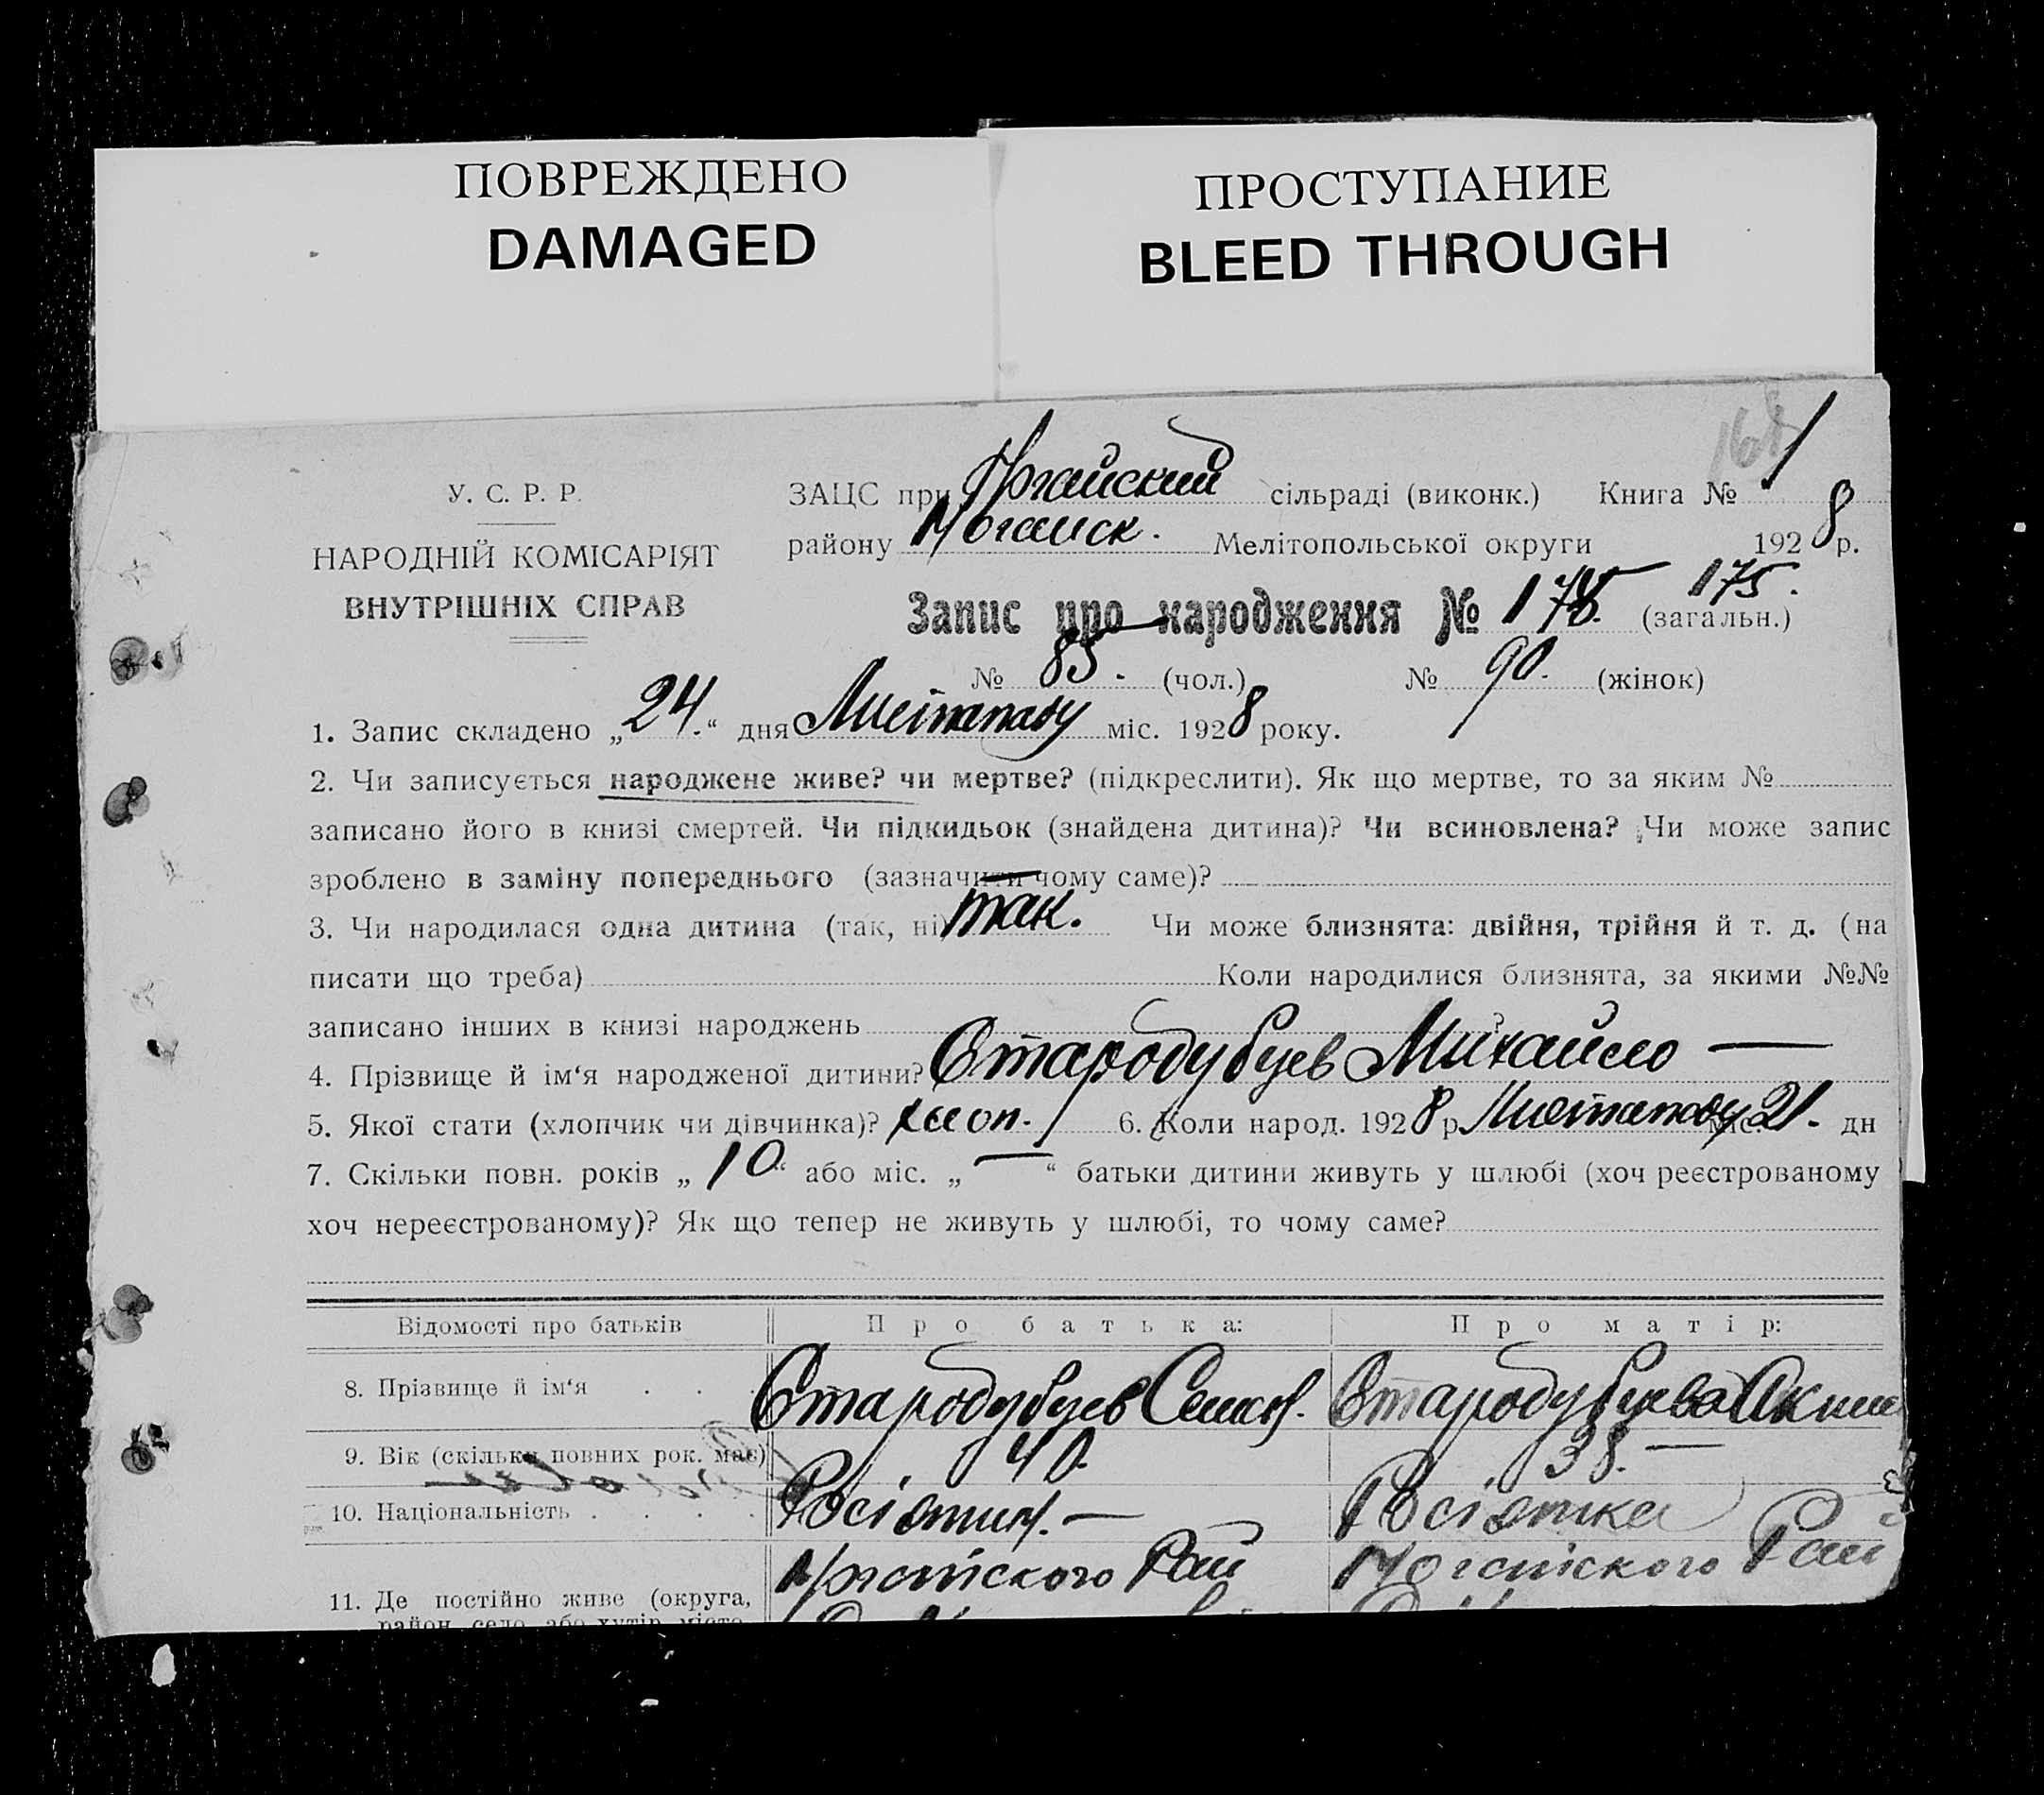 ПОВРЕЖДЕНО
DAMAGED
ПРОСТУПАНИЕ
BLEED THROUGH
У. С. Р. Р.
НАРОДНІЙ КОМІСАРІЯТ
ВНУТРІШНІХ СПРАВ
ЗАЦС при сільраді (виконк.) Книга № 1
району Ногайск. Мелітопольської округи 1928 р.
Запис про народження № 175. (загальн.)
№ 85. (чол.) № 90. (жінок)
1. Запис складено „24.“ дня Листопаду міс. 1928 року.
2. Чи записується народжене живе? чи мертве? (підкреслити). Як що мертве, то за яким №
записано його в книзі смертей. Чи підкидьок (знайдена дитина)? Чи всиновлена? Чи може запис
зроблено в заміну попереднього (зазначити чому саме)?
3. Чи народилася одна дитина (так, ні) так. Чи може близнята: двійня, трійня й т. д. (на
писати що треба) Коли народилися близнята, за якими №№
записано інших в книзі народжень ?
4. Прізвище й ім‘я народженої дитини? Стародубцев Михайло —
5. Якої стати (хлопчик чи дівчинка)? хлоп. 6. Коли народ. 1928 р. Листопаду міс. 21. дн
7. Скільки повн. років „10“ або міс. „—“ батьки дитини живуть у шлюбі (хоч реєстрованому
хоч нереєстрованому)? Як що тепер не живуть у шлюбі, то чому саме?
Відомості про батьків Про батька: Про матір:
8. Прізвище й ім‘я . . . Стародубцев Стародубцева
9. Вік (скільки повних рок. має) 40. 38. —
10. Національність . . . . Росіянин. — Росіянка
11. Де постійно живе (округа, Ногайского Рай Ногайского Рай
район, село, або хутір, місто,